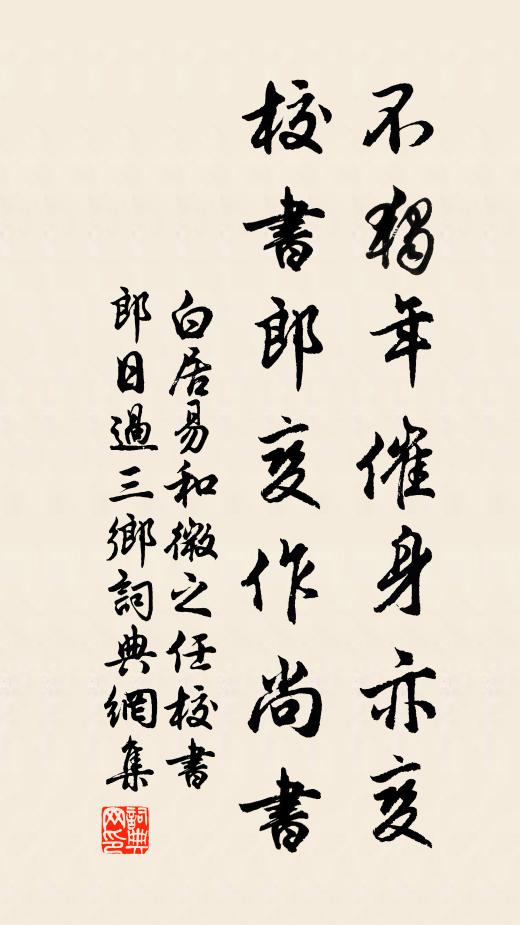 不獨年催身亦变
校書郎变作尚書
白居易和微之任校書
郎日過三鄉詞典網集
詞典网印